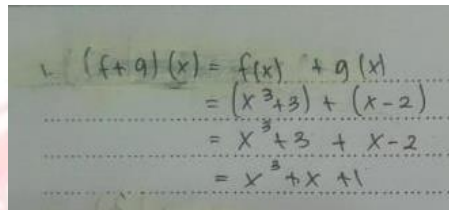 1. (f+g)(x) = f(x) + g(x)
= (x³+3) + (x-2)
= x³+3 + x-2
= x³+x+1